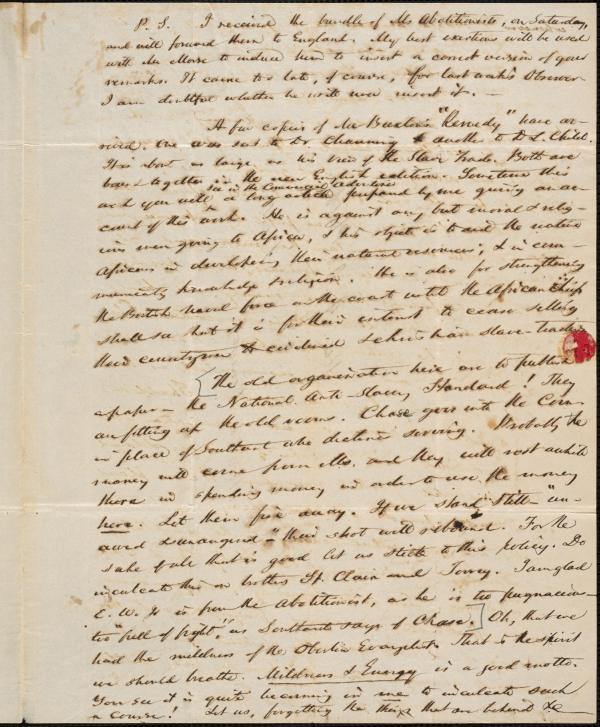 P. S. I received the bundle of Ms Abolitionists, on Saturday,
and will forward them to England. My best exertions will be used
with Mr Morse to induce him to insert a correct version of your
remarks. It came too late, of course, for last week's Observer
I am doubtful whether he will now insert it. —
A few copies of Mr Buxton's "Remedy" have ar-
rived. One was sent to Dr. Channing & another to D. L. Child.
It is about as large as his view of the Slave Trade. Both are
bound together in the new English edition. Sometime this
week you will see in the Commercial Advertiser a long article prepared by me giving an ac-
count of this work. He is against any, but moral & relig-
ious men going to Africa, & his object is to aid the native
Africans in developing their natural resources, & in com-
municating knowledge & religion. He is also for strengthening
the British naval force on the coast until the African chiefs
shall see that it is for their interest to cease selling
their countrymen to civilized & christian slave-traders
[The old organization here are to publish
a paper — the National Anti Slavery Standard! They
are fitting up the old rooms. Chase goes into the Com.
in place of Southard who declines serving. Probably the
money will come from Ms. and they will rest awhile
there in spending money in order to use the money
here. Let them fire away. If we stand still — "un-
awed & unangered — their shot will rebound. For the
sake of all that is good let us stick to this policy. Do
inculcate this on brothers St. Clair and Torrey. I am glad
C. W. D. is from the Abolitionist, as he is too pugnacious —
too "full of fight," as Southard says of Chase.] Oh, that we
had the mildness of the Oberlin Evangelist. That is the spirit
we should breathe. Mildness & Energy is a good motto.
You see it is quite becoming in me to inculcate such
a course! Let us, forgetting the things that are behind &c —